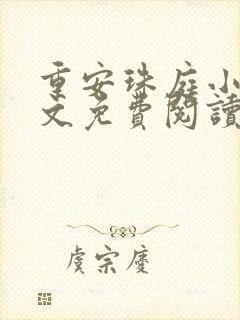 重安珠庭小
文免費閱讀
虞宗慶